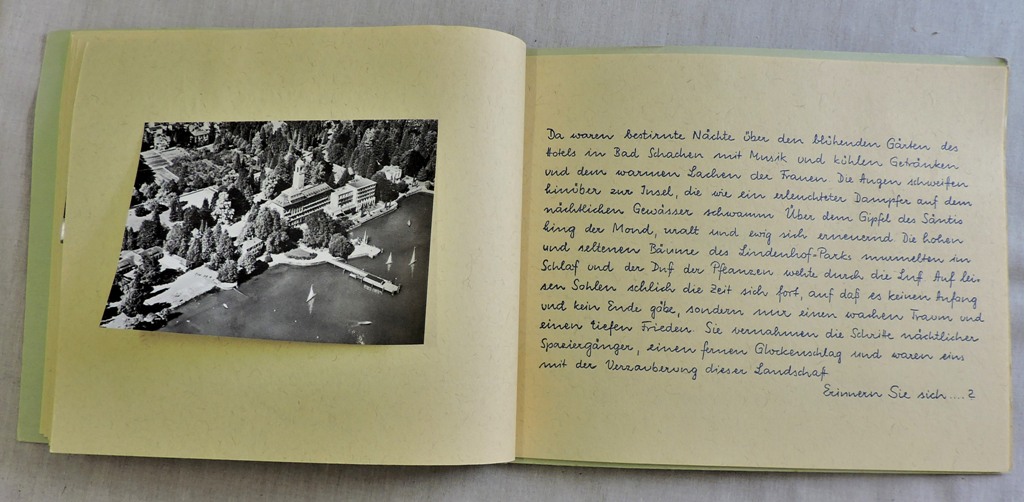 Da waren bestirnte Nächte über den blühenden Gärten des
Hotels in Bad Schachen mit Musik und kühlen Getränken
und dem warmen Lachen der Frauen. Die Augen schweiften
hinüber zur Insel, die wie ein erleuchteter Dampfer auf dem
nächtlichen Gewässer schwamm. Über dem Gipfel des Säntis
hing der Mond, uralt und ewig sich erneuernd. Die hohen
und seltenen Bäume des Lindenhof-Parks murmelten im
Schlaf und der Duft der Pflanzen wehte durch die Luft. Auf lei-
sen Sohlen schlich die Zeit sich fort, auf daß es keinen Anfang
und kein Ende gäbe, sondern nur einen wachen Traum und
einen tiefen Frieden. Sie vernahmen die Schritte nächtlicher
Spaziergänger, einen fernen Glockenschlag und waren eins
mit der Verzauberung dieser Landschaft.
Erinnern Sie sich....?